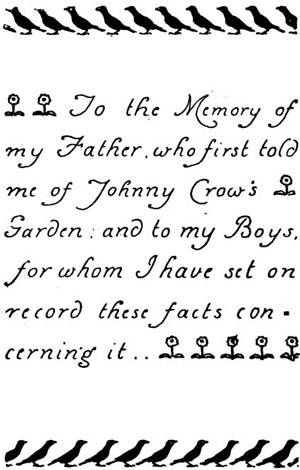 To the Memory of
my Father, who first told
me of Johnny Crow's
Garden: and to my Boys,
for whom I have set on
record these facts con-
cerning it..